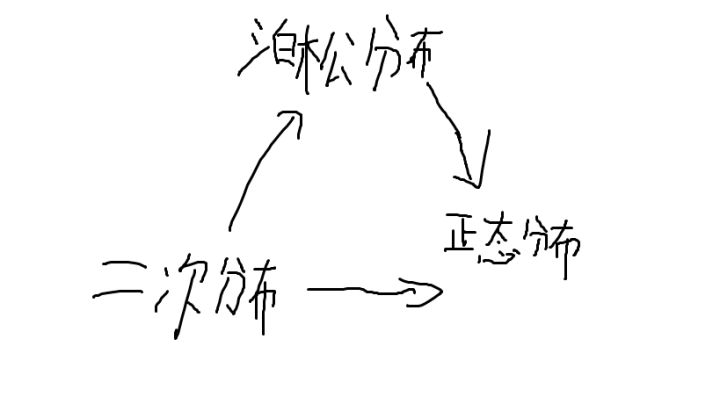 泊松分布
正态分布
二次分布